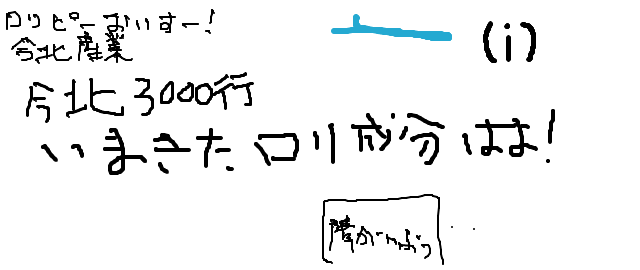 ロリピーおいすー!
今北産業
(i)
今北3000行
いまきたロリ成分はよ!